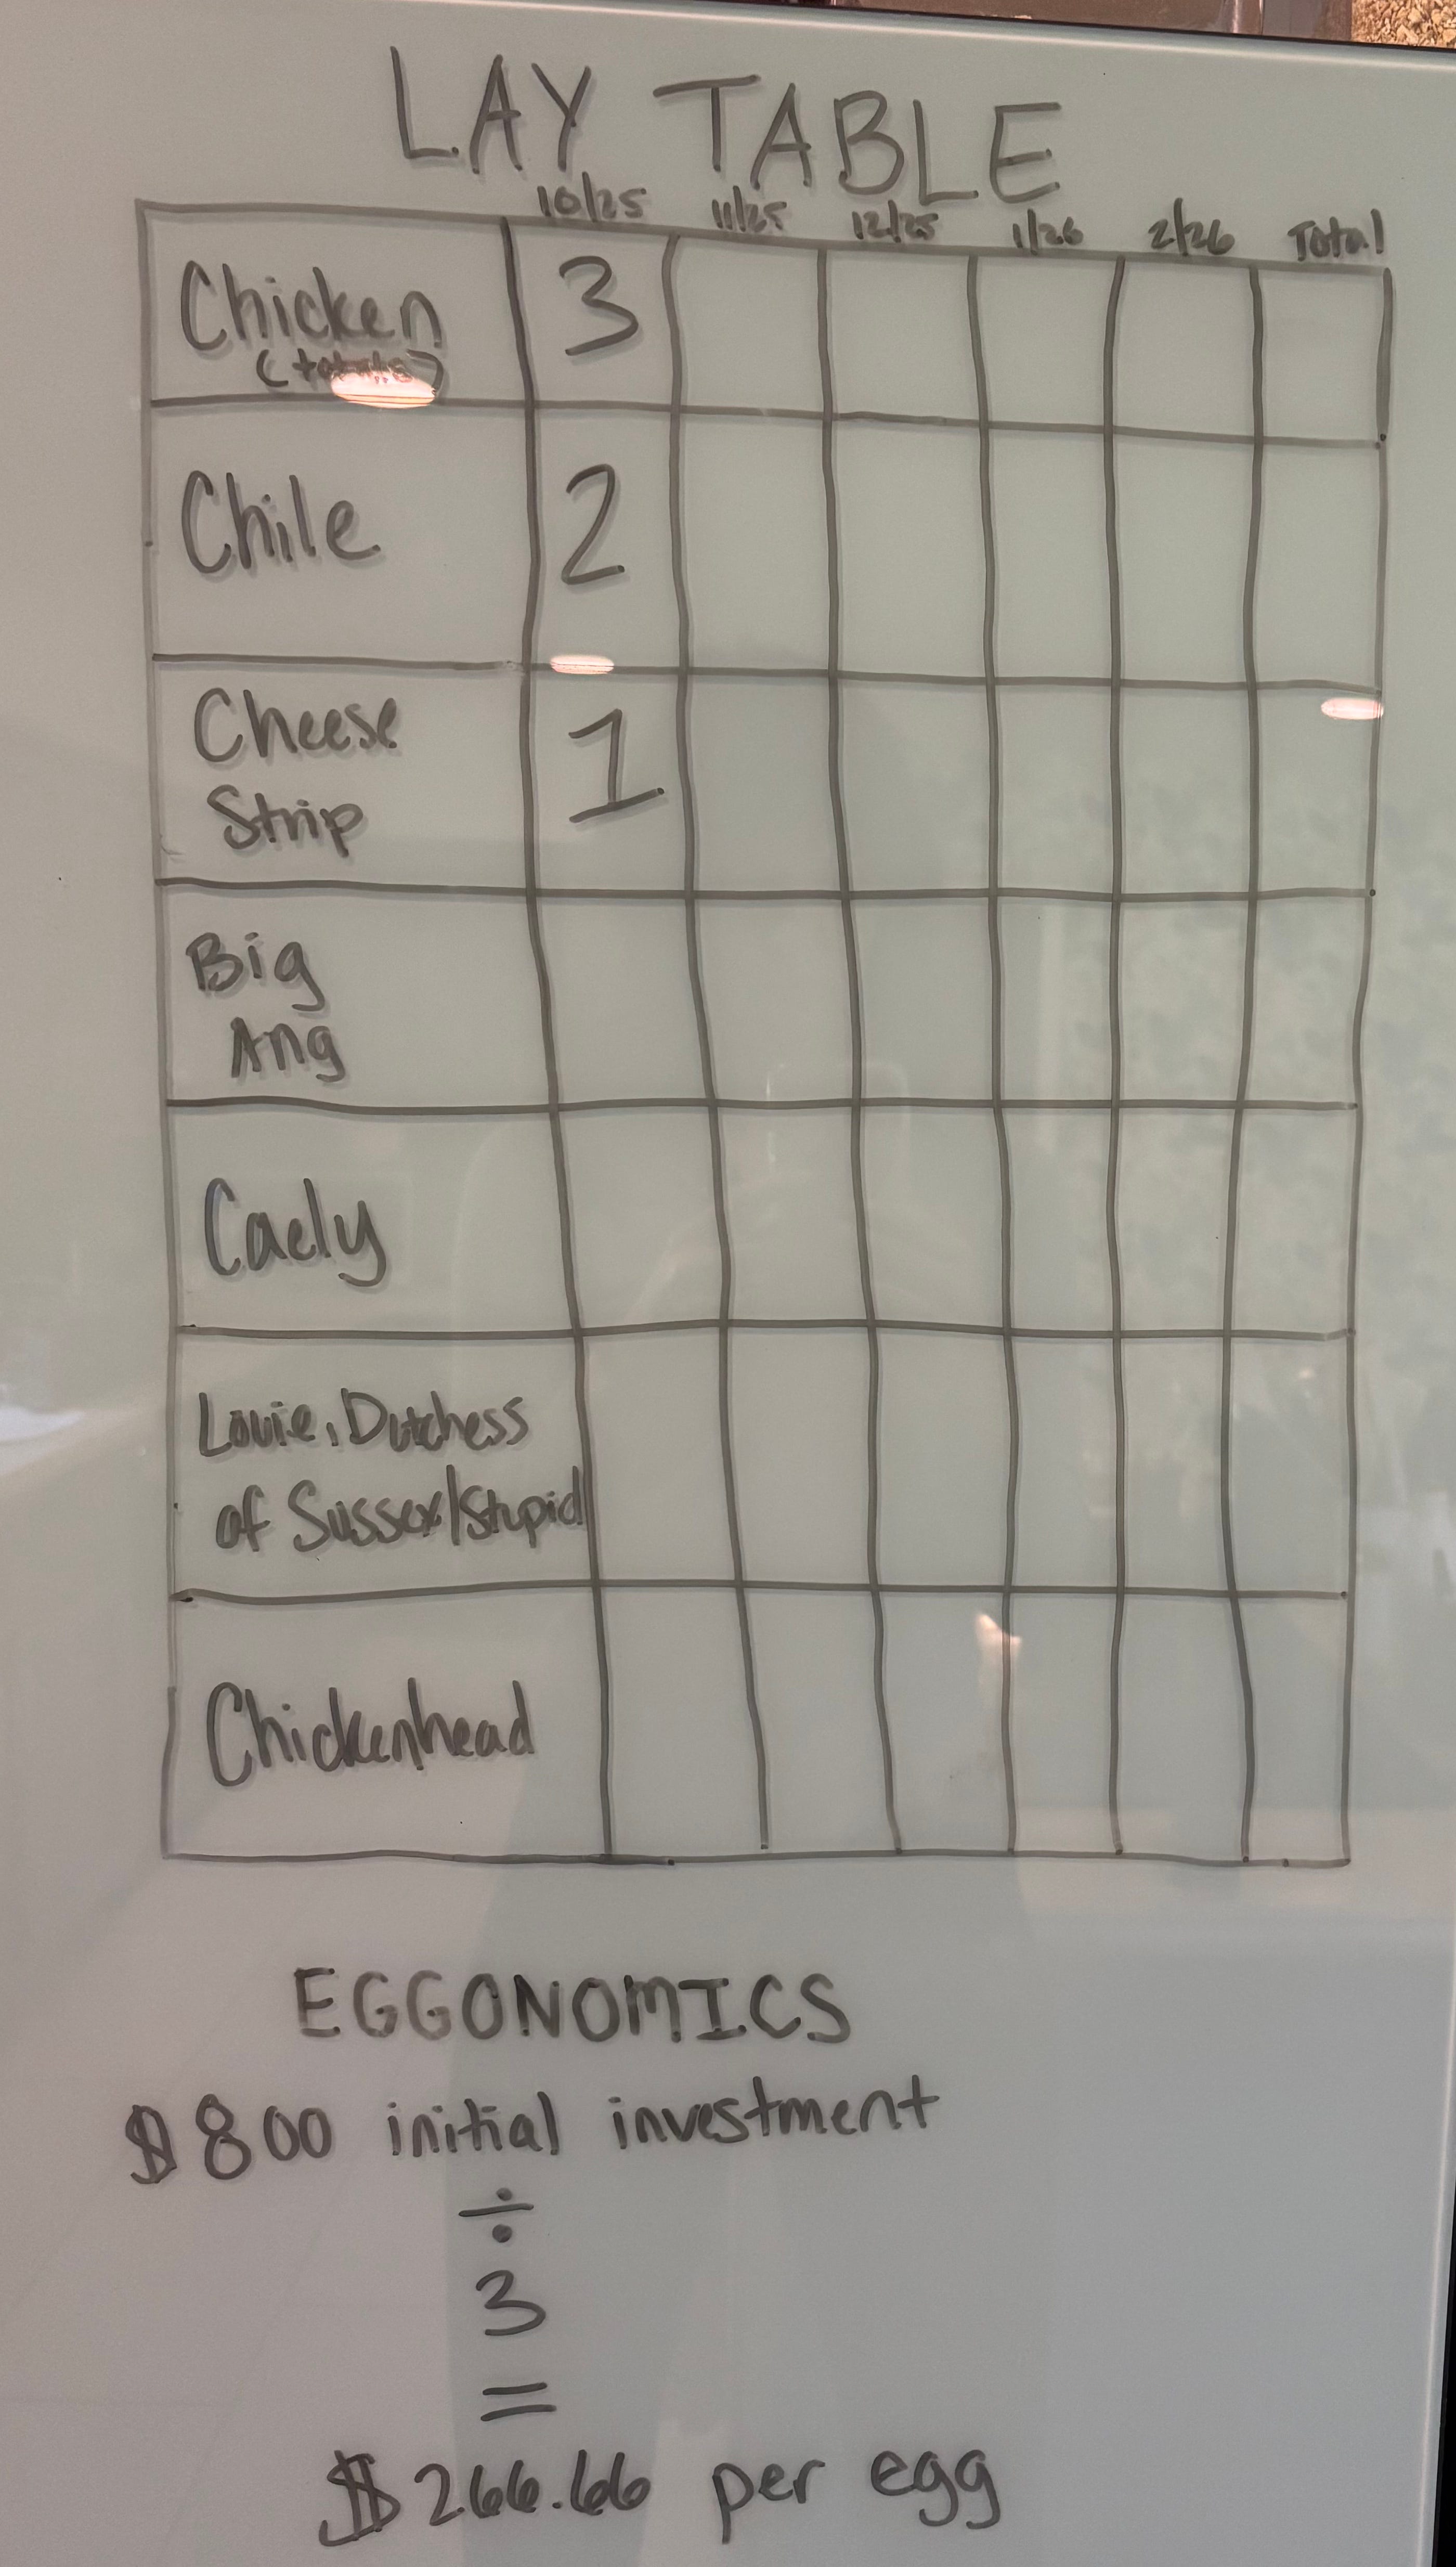 LAY TABLE
10/25 11/25 12/25 1/26 2/26 Total
Chicken 3
(totals)
Chile 2
Cheese 1
Strip
Big
Ang
Caely
Louie, Dutchess
of Sussex/Stupid
Chickenhead
EGGONOMICS
$800 initial investment
÷
3
=
$266.66 per egg